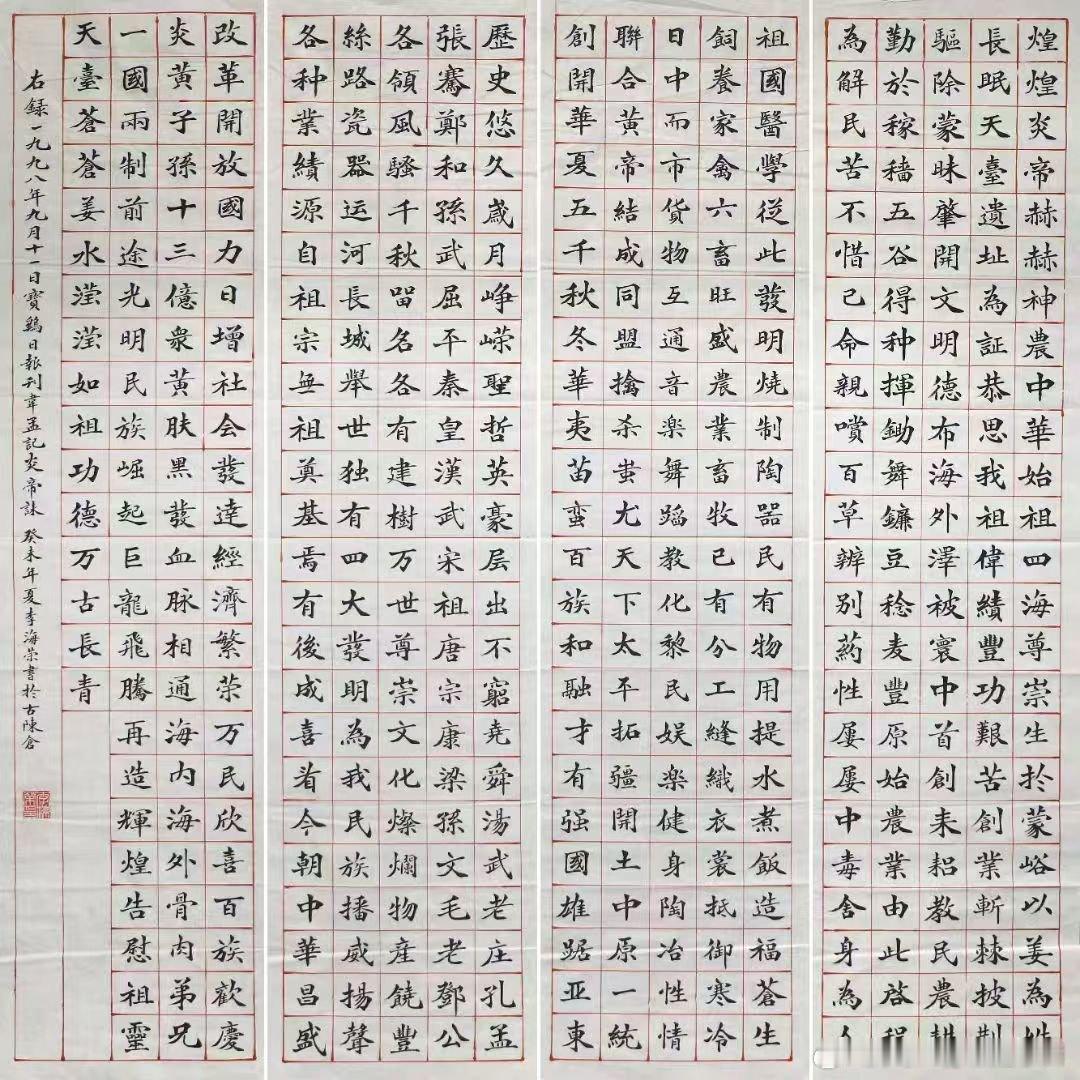 煌煌炎帝赫赫神農中華始祖四海尊崇生於蒙峪以姜為姓
長眠天臺遺址為証恭思我祖偉績豐功艱苦創業斬棘披荆
驅除蒙昧肇開文明德布海外澤被寰中首創耒耜教民農耕
勤於稼穡五谷得种揮鋤舞鐮豆稔麦豐原始農業由此啓程
為解民苦不惜己命親嚐百草辨别葯性屢屢中毒舍身為人
祖國醫學從此發明燒制陶器民有物用提水煮飯造福蒼生
飼養家禽六畜旺盛農業畜牧已有分工縫織衣裳抵御寒冷
日中而市貨物互通音楽舞蹈教化黎民娱楽健身陶冶性情
聯合黃帝結成同盟擒杀蚩尤天下太平拓疆開土中原一統
創開華夏五千秋冬華夷苗蛮百族和融才有强國雄踞亚東
歷史悠久歲月崢嶸聖哲英豪层出不窮堯舜湯武老庄孔孟
張騫鄭和孫武屈平秦皇漢武宋祖唐宗康梁孫文毛老鄧公
各領風騷千秋畱名各有建樹万世尊崇文化燦爛物産饒豐
絲路瓷器运河長城舉世独有四大發明為我民族播威揚聲
各种業績源自祖宗無祖奠基焉有後成喜看今朝中華昌盛
改革開放國力日增社会發達經濟繁荣万民欣喜百族歡慶
炎黃子孫十三億衆黃肤黑發血脉相通海内海外骨肉弟兄
一國兩制前途光明民族崛起巨龍飛騰再造輝煌告慰祖靈
天臺蒼蒼姜水滢滢如祖功德万古長青
右録一九九八年九月十一日寶鷄日報刊韋孟記炎帝誄 癸未年夏李海荣書於古陳倉